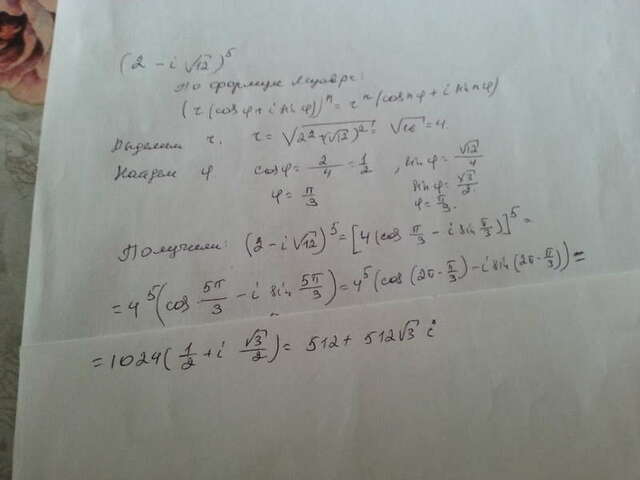 (2 - i √12)^5
По формуле Муавра:
(r(cosφ + i sinφ))^n = r^n (cos nφ + i sin nφ)
Выделим r. r = √(2² + (√12)²) = √16 = 4.
Найдем φ cosφ = 2/4 = 1/2, sinφ = √12/4
φ = π/3 sinφ = √3/2
φ = π/3.
Получили: (2 - i√12)^5 = [4(cos π/3 - i sin π/3)]^5 =
= 4^5 (cos 5π/3 - i sin 5π/3) = 4^5 (cos (2π - π/3) - i sin (2π - π/3)) =
= 1024(1/2 + i √3/2) = 512 + 512√3 i